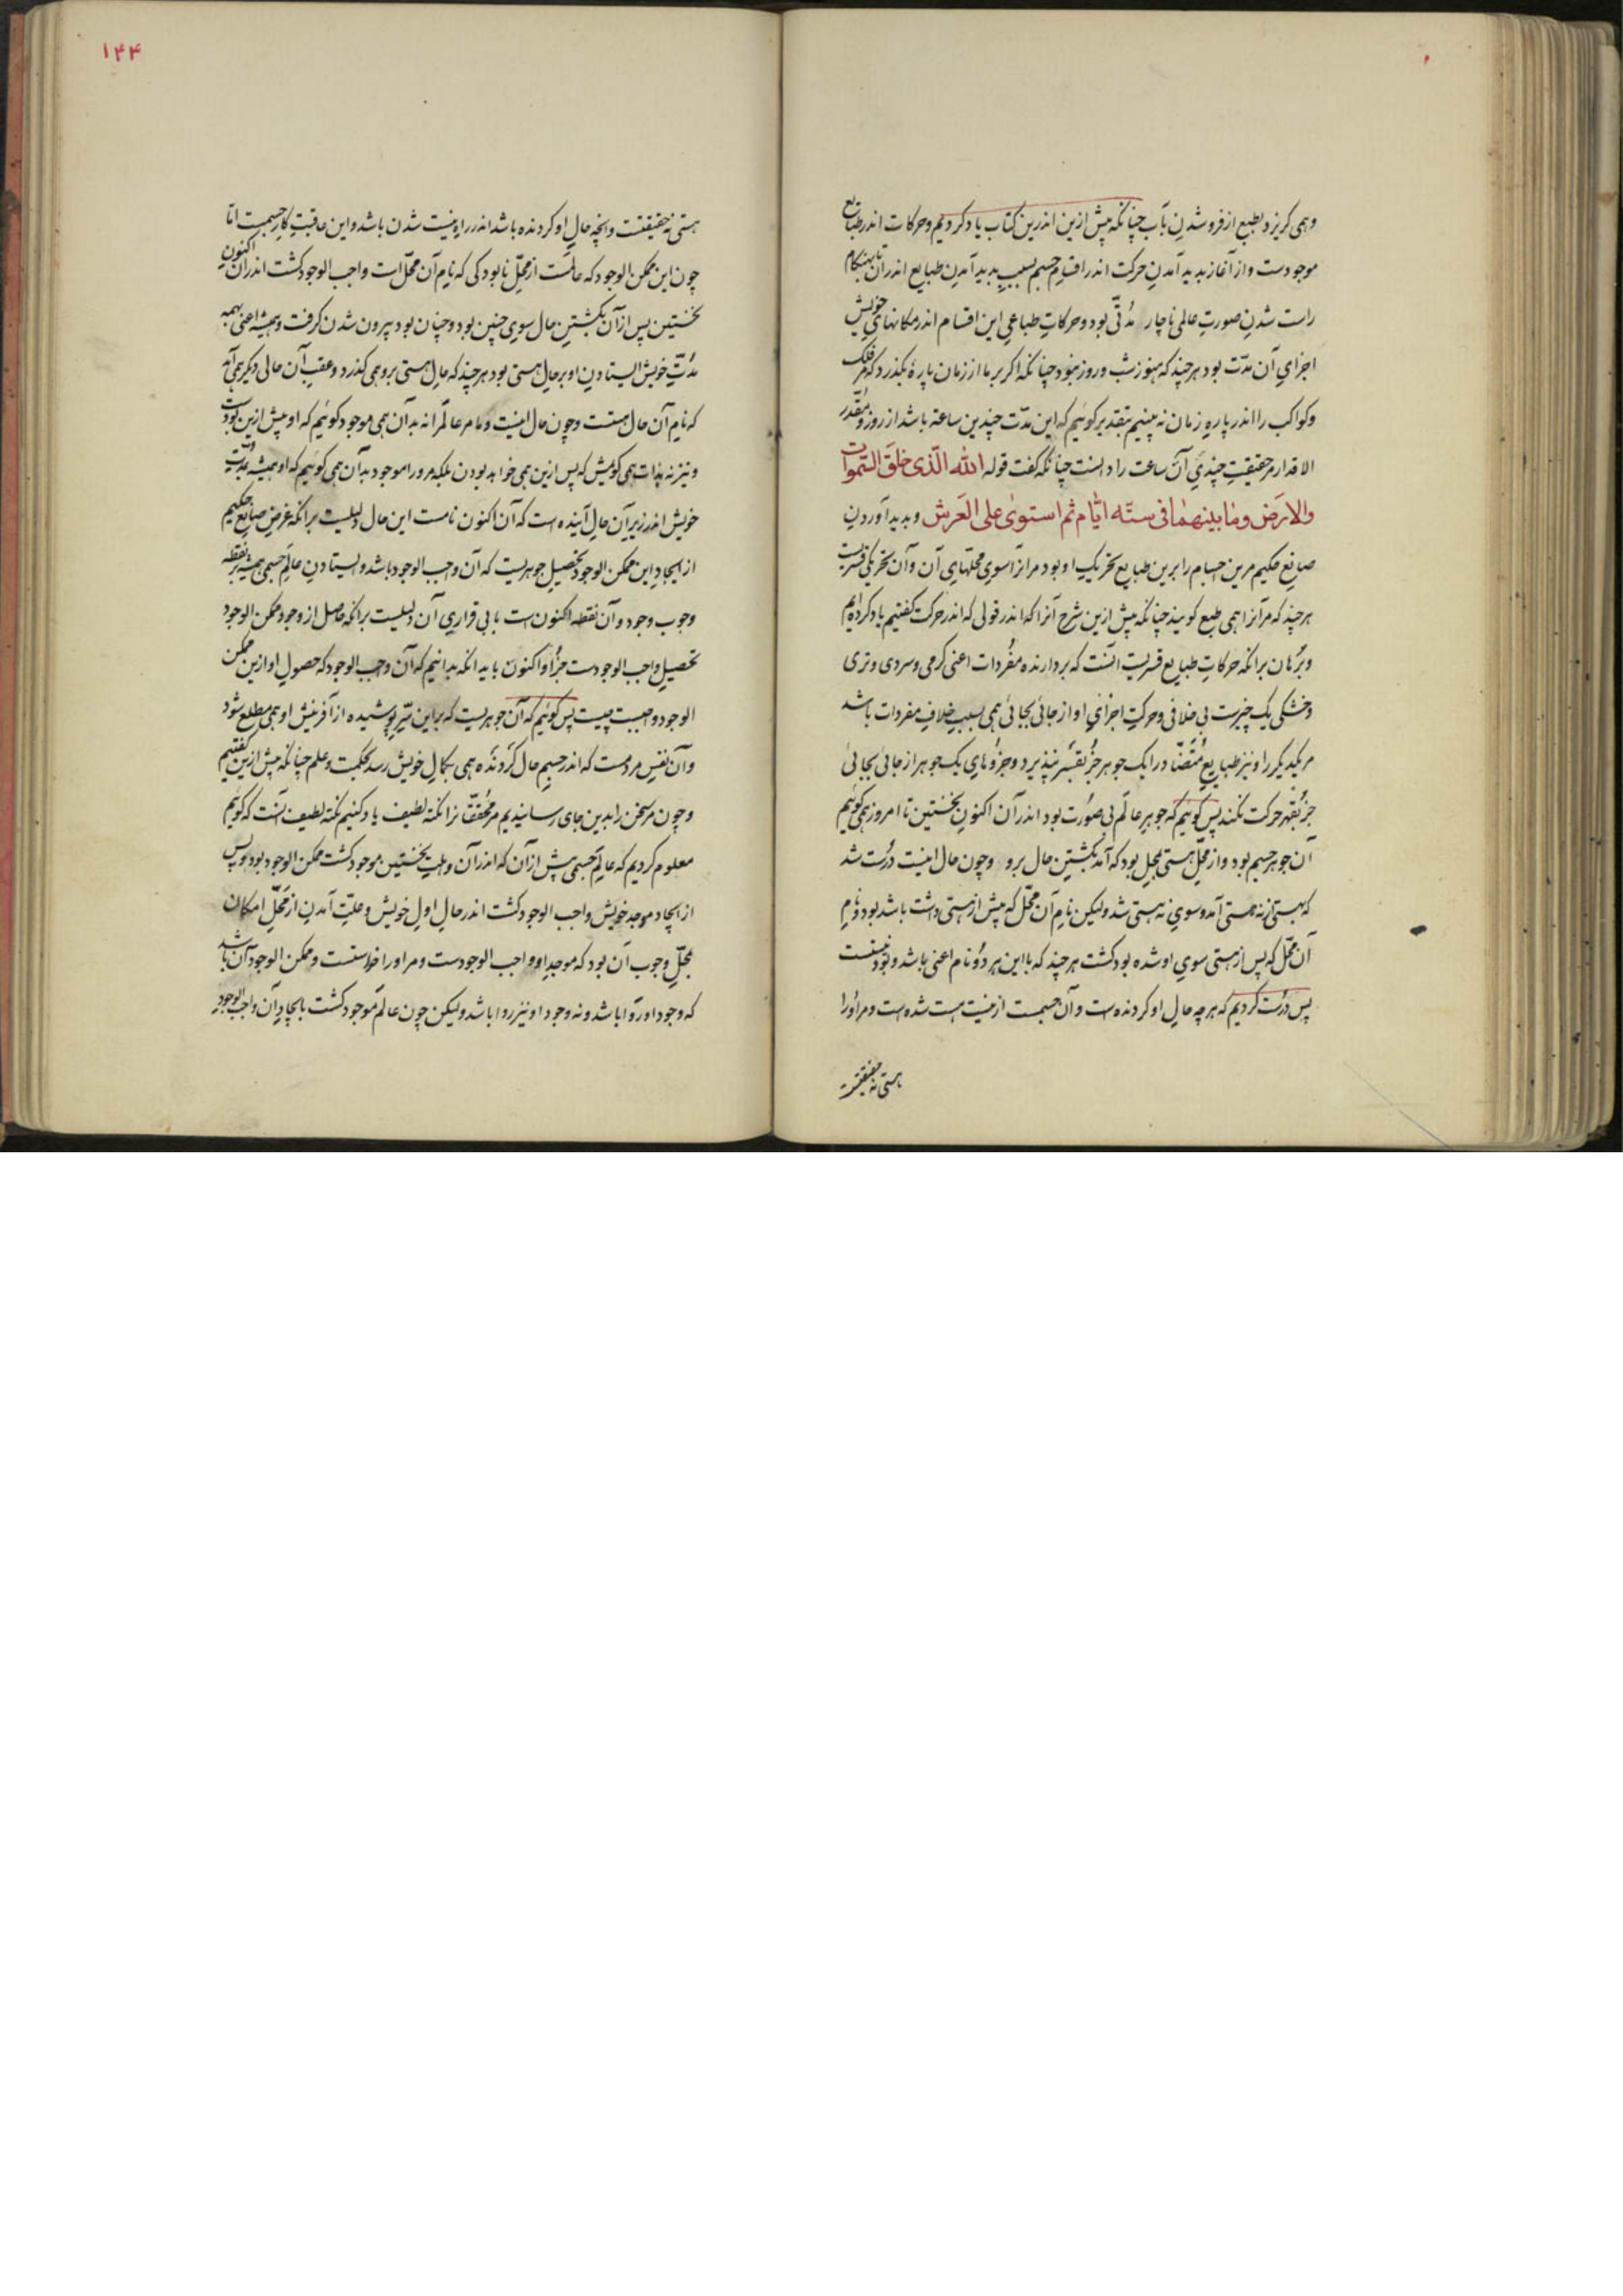 وهمی کریزد بطبع از فرو شدن بآب چنانکه پیش ازین اندرین کتاب یاد کردیم وحرکات اندر طبایع
موجودست واز آغاز بدید آمدن حرکت اندر اقسام جسم بسبب بدید آمدن طبایع اندران تا بهنکام
راست شدن صورت عالمی ناچار مدتی بود وحرکات طباعی این اقسام اندر مکانهای خویش
اجزای آن مدت بود هرچند که هنوز شب وروز نبود چنانکه اکر بر ما از زمان پارۀ بکذرد که مر فلک
وکواکب را اندر پارهِ زمان نه بینیم بتقدیر کوئیم که این مدت چندین ساعة باشد از روز ومُقَدّر
الاقدار مر حقیقت چندیِ آن ساعت را دانست چنانکه کفت قوله الله الّذی خلق السّموات
والارَض وما بینهما فی ستّه ایّام ثم استوی علی العَرش وبدید آوردن
صانع حکیم مرین اجسام را برین طبایع تحریک او بود مر آنرا سوی محلّهای آن وآن تحریکی قسریست
هرچند که مر آنرا همی طبع کویند چنانکه پیش ازین شرح آنرا که اندر قولی که اندر حرکت کفتیم یاد کرده ایم
وبُرهان برانکه حرکات طبایع قسریست آنست که بردارنده مفُردات اعنی کرمی وسردی وتری
وخشکی یک چیزست بی خلافی وحرکت اجزای او از جائی بجائی همی بسبب خلاف مفردات باشد
مر یکدیکر را ونیز طبایع مُتضادّ در ایک جوهر جز بقسَر نپذیرد وجزوُهای یک جوهر از جائی بجائی
جز بُقهر حرکت نکند پس کوئیم که جوهرِ عالَم بی صوُرت بود اندر آن اکنونِ نخستین تا امروز همی کوئیم
آن جوهر جسم بود واز محلّ هستی بمحل بود که آمد بکشتن حال برو وچون حال اینست درُست شد
که هستی از نه هستی آمد وسوی نه هستی شد ولیکن نام آن محَل که پیش از هستی داشت باشد بود ونام
آن محّل که پس از هستی سوی او شده بود کشت هرچند که با این هر دوُ نام اعنی باشد وبوُد نیست
پس درُست کردیم که هرچه حال او کردنده است وآن جسمست از نیست هست شده است ومر اوُرا
هستی نه حقیقتست
۱۴۴
هستی نه حقیقتست وانچه حالِ او کردنده باشد اندر راه نیست شدن باشد واین عاقبتِ کار جسمست اما
چون این ممکن الوجود که عالمَست از محلّ نابودکی که نام آن محلّ است واجب الوجود کشت اندر آن اکنونِ
نخستین پس از آن بکشتن حال سوی چنین بود وچنان بود بیرون شدن کرفت وهمیشه اعنی بهمه
مدّتِ خویش ایستادنِ او بر حالِ هستی بود هرچند که حال هستی بروهمی کذرد وعقب آن حالی دیکر همی آید
که نام آن حال هستست وچون حال اینست وما مر عالم را نه بدان همی موجود کوئیم که او پیش ازین بودست
ونیز نه بذات همی کویش که پس ازین همی خواهد بودن بلکه مرورا موجود بدان همی کوئیم که او همیشه بمدّت
خویش اندر زیر آن حالِ آینده است که آن اکنون نامست این حال دلیلست برانکه غرض صانع حکیم
از ایجاد این ممکن الوجود تحصیل جوهریست که آن واجب الوجود باشد وایستادن عالم جسمی همیشه بر نقطه
وجوب وجود وآن نقطه اکنون است با بی قراری آن دلیلست برانکه حاصل از وجود ممکن الوجود
تحصیل واجب الوجودست جزو او اکنون باید انکه بدانیم که آن واجب الوجود که حصول او ازین ممکن
الوجود واجبست چیست پس کوئیم که آن جوهریست که بر این سّرِ پوشیده از آفرینش او همی مطلع شود
وآن نفسِ مردمست که اندر جسمِ حال کردنده همی بکمال خویش رسد بحکمت وعلم چنانکه پیش ازین کفتیم
وچون مر سخن را بدین جای رسانیدیم مر محُققّانرا نکته لطیف یاد کنیم نکته لطیف آنست که کوئیم
معلوم کردیم که عالَم جسمی پیش از آن که اندر آن وهلت نخستین موجود کشت ممکن الوجود بود وپس
از ایجاد موجد خویش واجب الوجود کشت اندر حالِ اولِ خویش وعلّت آمدن از محَلِّ امکان
بمحّلِ وجوب آن بود که موجدِ او واجب الوجودست ومر اورا خواستست وممکن الوجود آن باشد
که وجود او روا باشد ونه وجود او نیز روا باشد ولیکن چون عالَم موجود کشت بایجادِ آن واجب الوجود